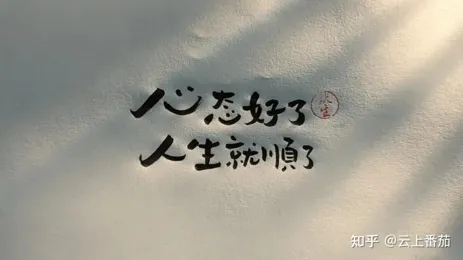 心态好了
人生就順了
知乎 @云上番茄